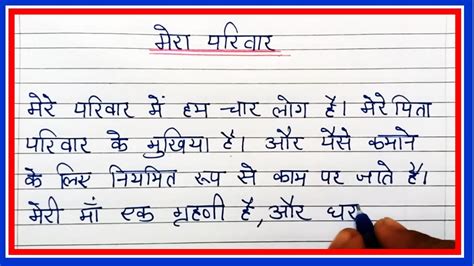 मेरा परिवार
मेरे परिवार में हम चार लोग है। मेरे पिता
परिवार के मुखिया है। और पैसे कमाने
के लिए नियमित रूप से काम पर जाते है।
मेरी माँ एक ग्रहणी है, और घर